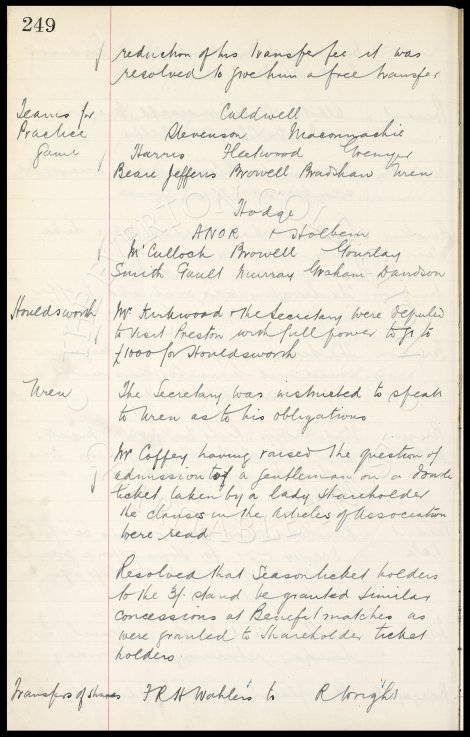 249
reduction of his transfer fee it was
resolved to give him a free transfer
Teams for Practice Game
Caldwell
Stevenson Maconnachie
Harris Fleetwood Grenyer
Beare Jefferis Browell Bradshaw Wren
Hodge
ANOR & Holbem
McCulloch Browell Gourlay
Smith Gault Murray Graham Davidson
Houldsworth
Mr Kirkwood & the Secretary were deputed
to visit Preston with full power to go to
£1000 for Houldsworth
Wren
The Secretary was instructed to speak
to Wren as to his obligations
Mr Coffey having raised the question of
admission of a gentleman on a
ticket, taken by a lady shareholder
the clauses in the Articles of Association
were read
Resolved that Season ticket holders
to the 3/- stand be granted similar
concessions at Benefit matches as
were granted to Shareholder ticket
holders.
Transfers of shares
F R H Wahlers to R Wright